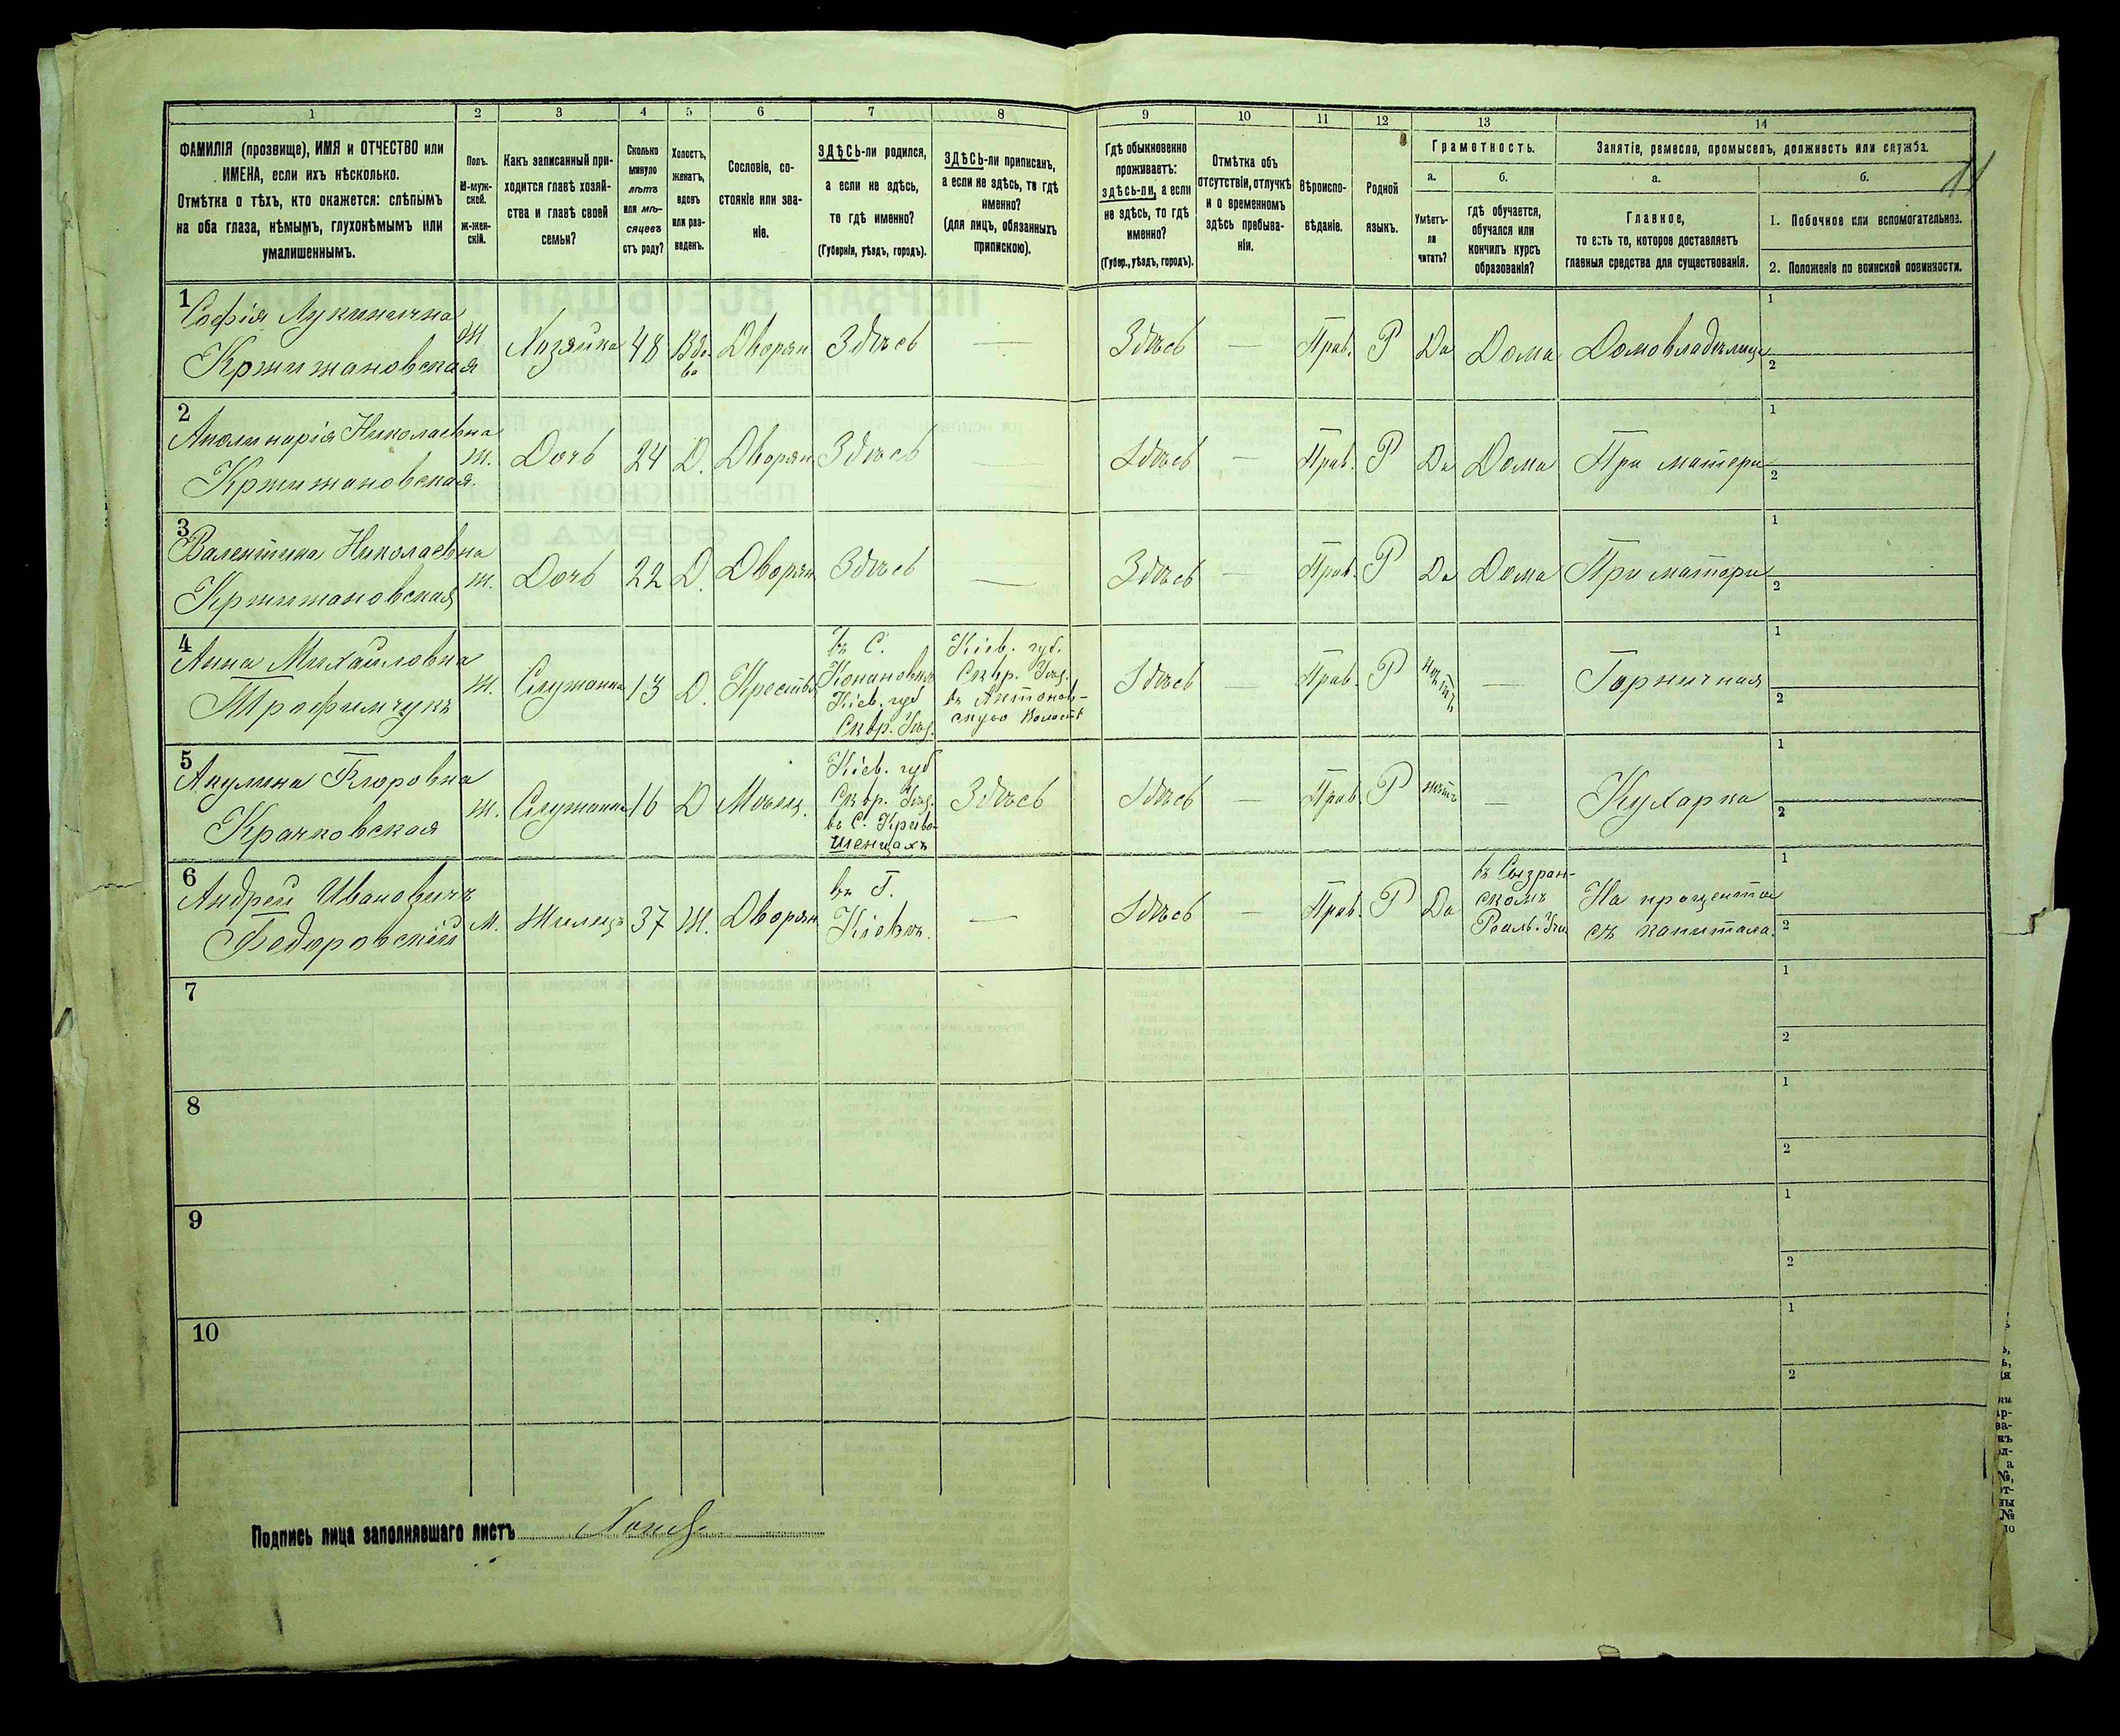 1 2 3 4 5 6 7 8 9 10 11 12 13 14
ФАМИЛІЯ (прозвище), ИМЯ и ОТЧЕСТВО или
ИМЕНА, если ихъ нѣсколько.
Отмѣтка о тѣхъ, кто окажется: слѣпымъ
на оба глаза, нѣмымъ, глухонѣмымъ или
умалишеннымъ.
Полъ.
М-муж-
ской.
Ж-жен-
скій.
Какъ записанный при-
ходится главѣ хозяй-
ства и главѣ своей
семьи?
Сколько
минуло
лѣтъ
или мѣ-
сяцевъ
отъ роду?
Холостъ,
женатъ,
вдовъ
или раз-
веденъ.
Сословіе, со-
стояніе или зва-
ніе.
ЗДѢСЬ-ли родился,
а если не здѣсь,
то гдѣ именно?
(Губернія, уѣздъ, городъ).
ЗДѢСЬ-ли приписанъ,
а если не здѣсь, то гдѣ
именно?
(для лицъ, обязанныхъ
припискою).
Гдѣ обыкновенно
проживаетъ:
здѣсь-ли, а если
не здѣсь, то гдѣ
именно?
(Губер., уѣздъ, городъ).
Отмѣтка объ
отсутствіи, отлучкѣ
и о временномъ
здѣсь пребыва-
ніи.
Вѣроиспо-
вѣданіе.
Родной
языкъ.
Грамотность.
а.
Умѣетъ-
ли
читать?
б.
гдѣ обучается,
обучался или
кончилъ курсъ
образованія?
Занятіе, ремесло, промыселъ, должность или служба.
а.
Главное,
то есть то, которое доставляетъ
главныя средства для существованія.
б.
1. Побочное или вспомогательное.
2. Положеніе по воинской повинности.
1
Софія Лукинична
Кржижановская
Ж Хозяйка 48 Вдо-
ва
Дворян Здѣсь — Здѣсь — Прав. Р Да Дома Домовладѣлица
1
2
2
Аполинарія Николаевна
Кржижановская.
Ж. Дочь 24 Д. Дворян Здѣсь — Здѣсь — Прав. Р Да Дома При матери
1
2
3
Валентина Николаевна
Кржижановская
Ж. Дочь 22 Д. Дворян Здѣсь — Здѣсь — Прав. Р Да Дома При матери
1
2
4
Анна Михайловна
Трофимчукъ
Ж. Служанка 13 Д. Крестья
въ С.
Кіев. губ
Сквр. Уѣз.
Кіев. губ.
Сквр. Уѣз.
въ Антонов-
скую волость
Здѣсь — Прав. Р Нѣтъ — Горничная
1
2
5
Акулина
Крачковская
Ж. Служанка 16 Д Мѣщ.
Кіев. губ
Сквр. Уѣз.
въ С. Криво-
шеинцахъ
Здѣсь Здѣсь — Прав Р Нѣтъ — Кухарка
1
2
6
Андрей Ивановичъ
Федоровскій
М. Жилецъ 37 Ж. Дворян.
въ Г.
Кіевѣ.
— Здѣсь — Прав. Р Да
въ Сызран-
скомъ
Реаль. Учи
На проценты
съ капитала.
1
2
7
1
2
8
1
2
9
1
2
10
1
2
Подпись лица заполнявшаго листъ